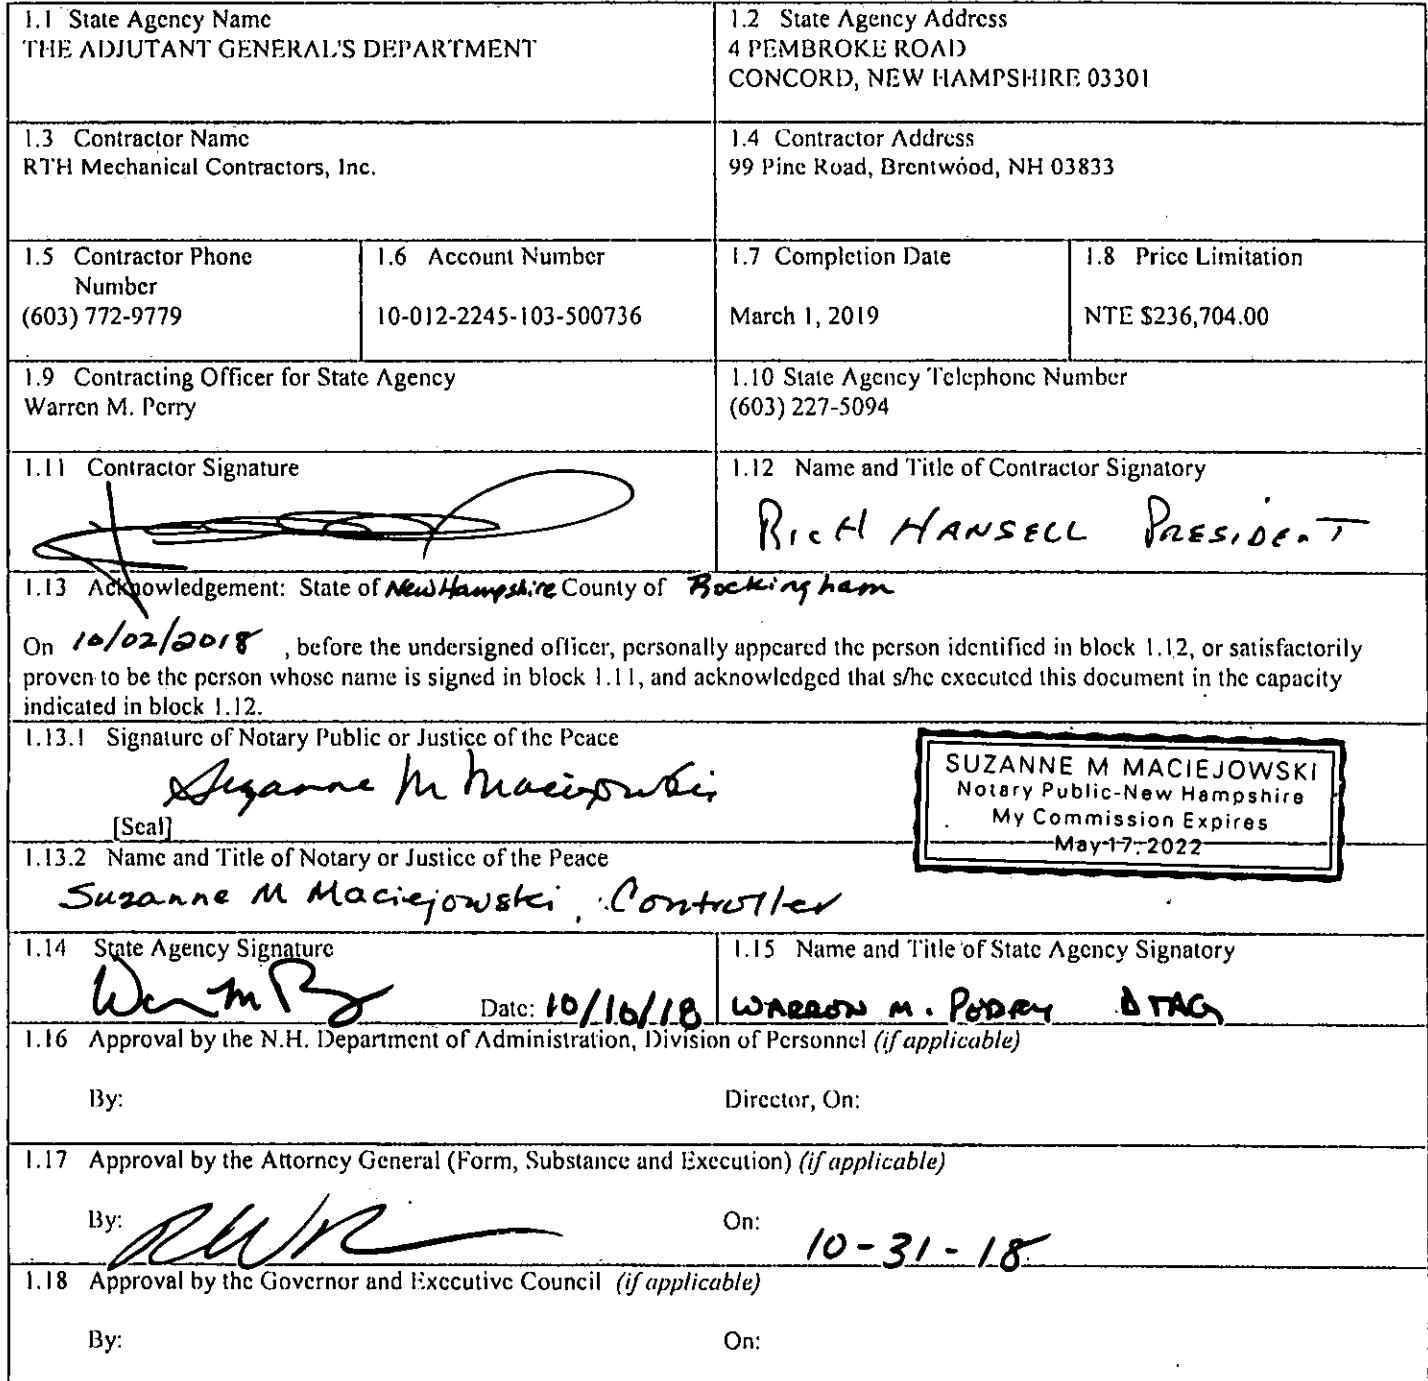 1.1 State Agency Name
THE ADJUTANT GENERAL'S DEPARTMENT
1.2 State Agency Address
4 PEMBROKE ROAD
CONCORD, NEW HAMPSHIRE 03301
1.3 Contractor Name
RTH Mechanical Contractors, Inc.
1.4 Contractor Address
99 Pine Road, Brentwood, NH 03833
1.5 Contractor Phone
Number
(603) 772-9779
1.6 Account Number
10-012-2245-103-500736
1.7 Completion Date
March 1, 2019
1.8 Price Limitation
NTE $236,704.00
1.9 Contracting Officer for State Agency
Warren M. Perry
1.10 State Agency Telephone Number
(603) 227-5094
1.11 Contractor Signature
1.12 Name and Title of Contractor Signatory
RicH HANSELL PRESIDENT
1.13 Acknowledgement: State of New Hampshire County of Rockingham
On 10/02/2018 , before the undersigned officer, personally appeared the person identified in block 1.12, or satisfactorily
proven to be the person whose name is signed in block 1.11, and acknowledged that s/he executed this document in the capacity
indicated in block 1.12.
1.13.1 Signature of Notary Public or Justice of the Peace
Suzanne M Maciejowski
[Seal]
SUZANNE M MACIEJOWSKI
Notary Public-New Hampshire
My Commission Expires
May 17, 2022
1.13.2 Name and Title of Notary or Justice of the Peace
Suzanne M Maciejowski, Controller
1.14 State Agency Signature
Date: 10/10/18
1.15 Name and Title of State Agency Signatory
WARREN M. PERRY DTAG
1.16 Approval by the N.H. Department of Administration, Division of Personnel (if applicable)
By:
Director, On:
1.17 Approval by the Attorney General (Form, Substance and Execution) (if applicable)
By:
On: 10-31-18
1.18 Approval by the Governor and Executive Council (if applicable)
By:
On: